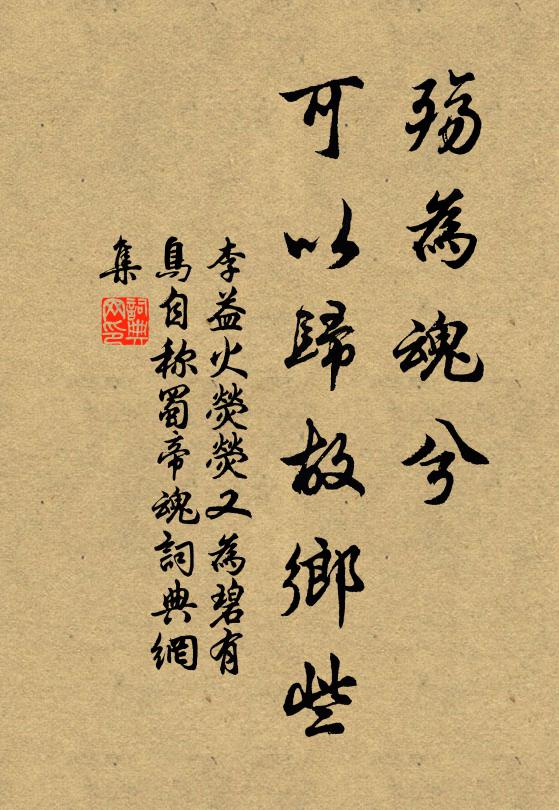 殤為魂兮
可以歸故鄉些
李益火熒熒又為碧有
鳥自称蜀帝魂詞典網
集
詞典网印